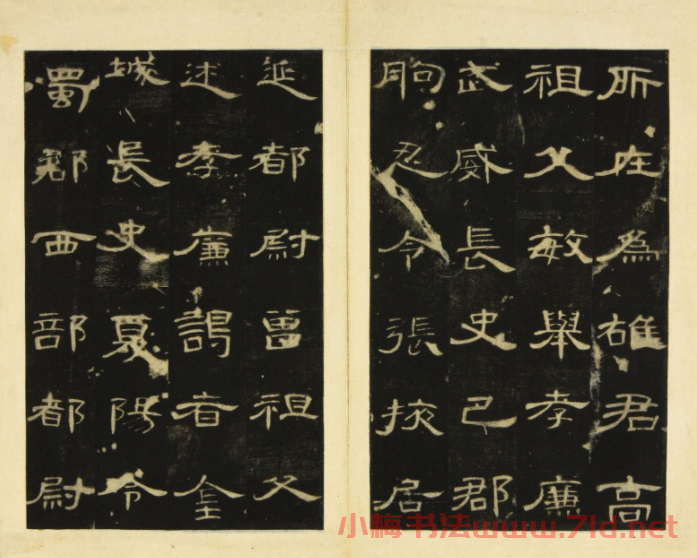 所在為雄君高
祖父敏舉孝廉
武威長史巴郡
朐忍令張掖居
延都尉曾祖父
述孝廉謁者金
城長史夏陽令
蜀郡西部都尉
小梅书法www.7ld.net